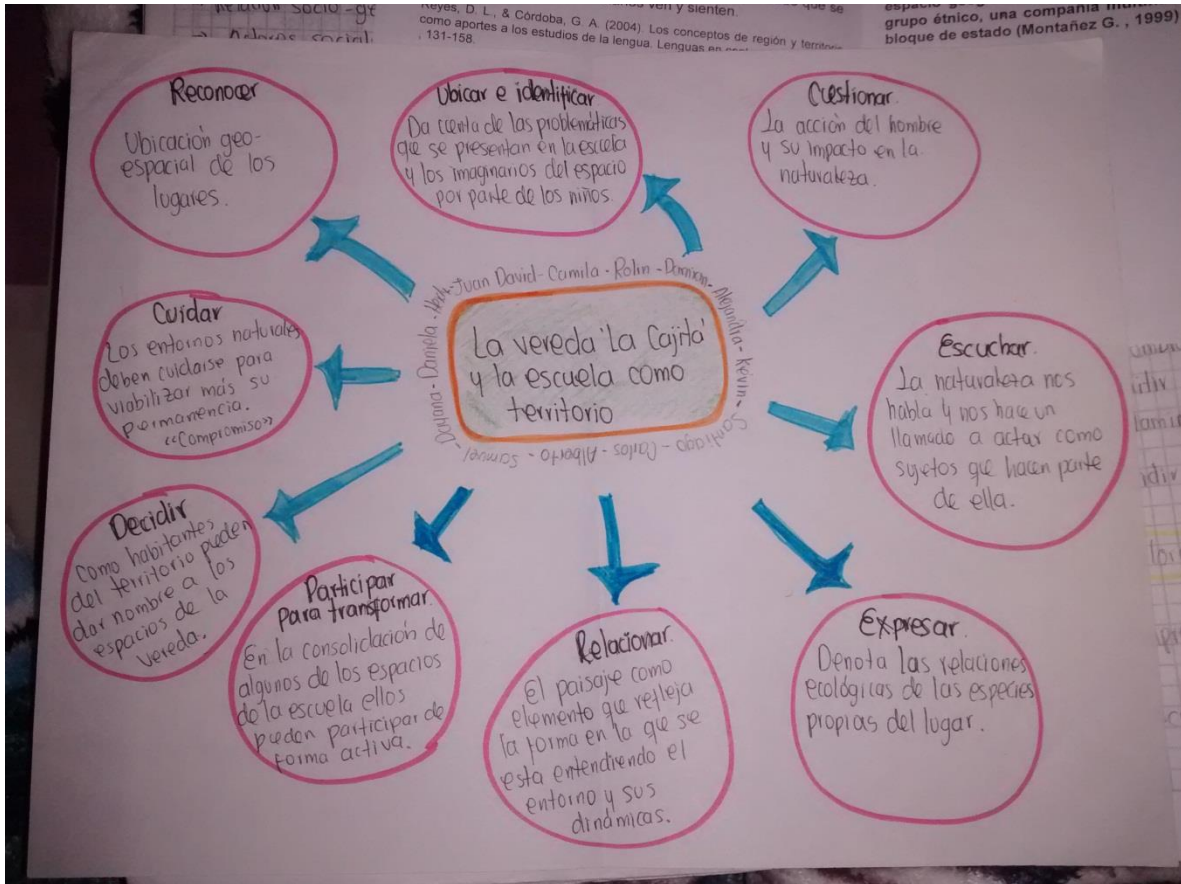 Relación socio-
Reyes, D. L., & Córdoba, G. A. (2004). Los conceptos de región y territorio
como aportes a los estudios de la lengua. Lenguas en
, 131-158.
ven y sienten.
que se
grupo étnico, una compañía
bloque de estado (Montañez G. , 1999)
Reconocer
Ubicación geo-
espacial de los
lugares.
Ubicar e identificar
Da cuenta de las problemáticas
que se presentan en la escuela
y los imaginarios del espacio
por parte de los niños.
Cuestionar.
La acción del hombre
y su impacto en la
naturaleza.
Juan David - Camila - Rolin - Damian - Alejandra - Kevin -
Santiago - Carlos - Alberto - Samuel -
Dayana - Daniela -
La vereda 'La Cajita'
y la escuela como
territorio
Cuidar
Los entornos naturales
deben cuidarse para
viabilizar más su
permanencia.
«Compromiso»
Escuchar.
La naturaleza nos
habla y nos hace un
llamado a actar como
sujetos que hacen parte
de ella.
Decidir
Como habitantes
del territorio pueden
dar nombre a los
espacios de la
vereda.
Participar
para transformar.
En la consolidación de
algunos de los espacios
de la escuela ellos
pueden participar de
forma activa.
Relacionar.
El paisaje como
elemento que refleja
la forma en la que se
esta entendiendo el
entorno y sus
dinámicas.
Expresar.
Denota las relaciones
ecológicas de las especies
propias del lugar.